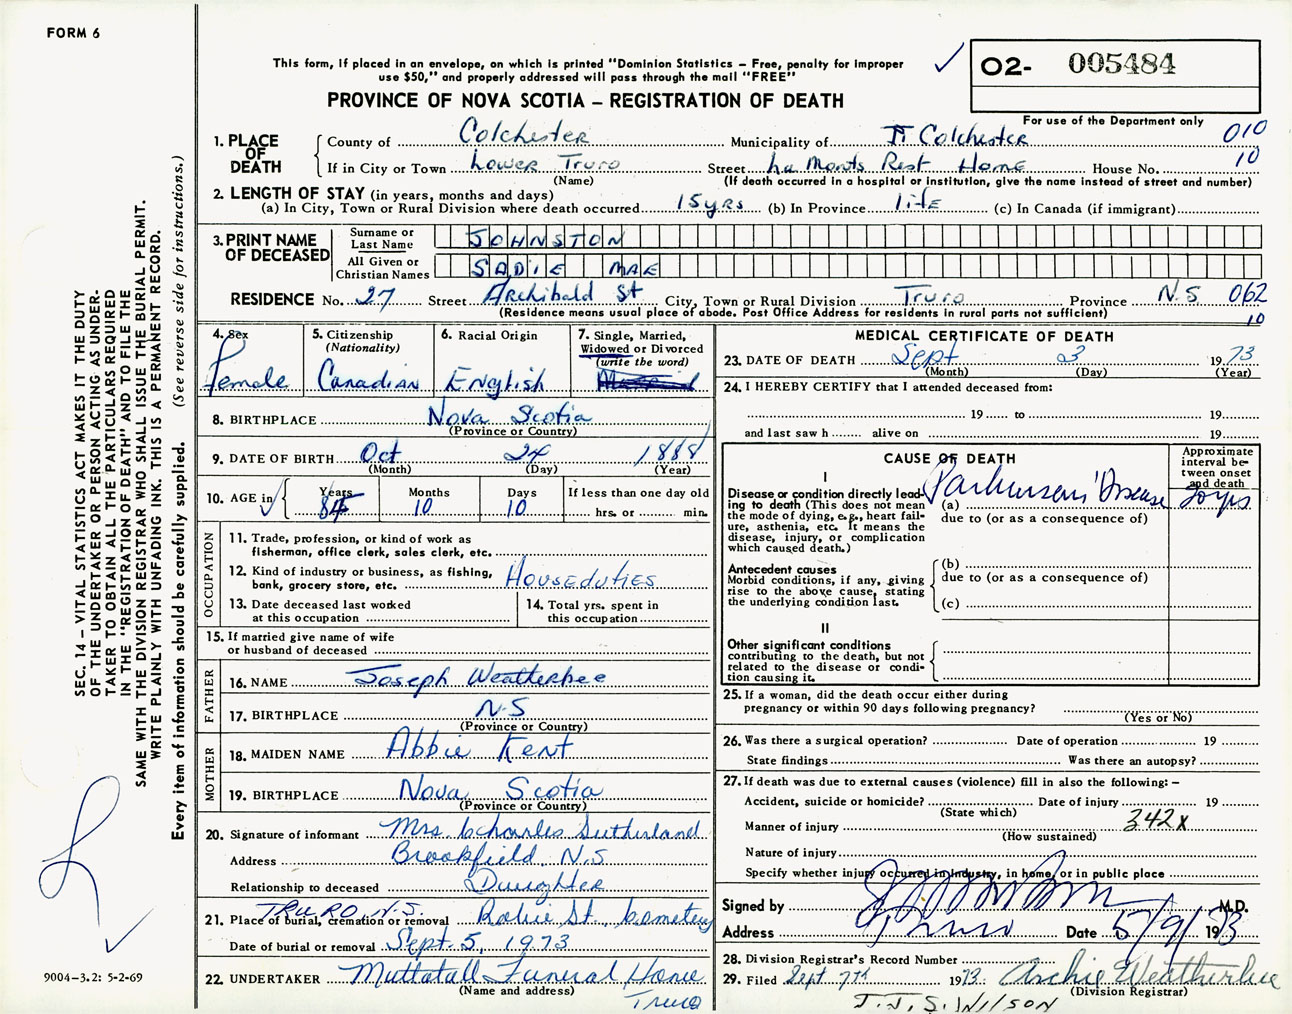 FORM 6
This form, if placed in an envelope, on which is printed "Dominion Statistics – Free, penalty for improper
use $50," and properly addressed will pass through the mail "FREE"
O2- 005484
For use of the Department only
PROVINCE OF NOVA SCOTIA – REGISTRATION OF DEATH
010
10
1. PLACE OF DEATH
County of Colchester Municipality of Colchester
If in City or Town Lower Truro Street La Monts Rest Home House No.
(Name) (If death occurred in a hospital or institution, give the name instead of street and number)
2. LENGTH OF STAY (in years, months and days)
(a) In City, Town or Rural Division where death occurred 15yrs (b) In Province life (c) In Canada (if immigrant)
3. PRINT NAME OF DECEASED
Surname or Last Name JOHNSTON
All Given or Christian Names SADIE MAE
RESIDENCE No. 27 Street Archibald St City, Town or Rural Division Truro Province N.S 062
(Residence means usual place of abode. Post Office Address for residents in rural parts not sufficient) 10
4. Sex
Female
5. Citizenship
(Nationality)
Canadian
6. Racial Origin
English
7. Single, Married,
Widowed or Divorced
(write the word)
8. BIRTHPLACE Nova Scotia
(Province or Country)
9. DATE OF BIRTH Oct 24 1888
(Month) (Day) (Year)
10. AGE in Years 84 Months 10 Days 10 If less than one day old
hrs. or min.
OCCUPATION
11. Trade, profession, or kind of work as
fisherman, office clerk, sales clerk, etc.
12. Kind of industry or business, as fishing,
bank, grocery store, etc. HOUSEDUTIES
13. Date deceased last worked
at this occupation
14. Total yrs. spent in
this occupation
15. If married give name of wife
or husband of deceased
FATHER
16. NAME Joseph Weatherbee
17. BIRTHPLACE N-S
(Province or Country)
MOTHER
18. MAIDEN NAME Abbie Kent
19. BIRTHPLACE Nova Scotia
(Province or Country)
20. Signature of informant Mrs Charles Sutherland
Address Brookfield N.S
Relationship to deceased Daughter
TRURO N.S.
21. Place of burial, cremation or removal Robie St. Cemetery
Date of burial or removal Sept. 5, 1973
22. UNDERTAKER Mattatall Funeral Home
(Name and address) Truro
MEDICAL CERTIFICATE OF DEATH
23. DATE OF DEATH Sept 3 1973
(Month) (Day) (Year)
24. I HEREBY CERTIFY that I attended deceased from:
19 to 19
and last saw h alive on 19
CAUSE OF DEATH
Approximate interval between onset and death
I
Disease or condition directly leading to death (This does not mean the mode of dying, e.g., heart failure, asthenia, etc. It means the disease, injury, or complication which caused death.)
(a) Parkinsons Disease 20yrs
due to (or as a consequence of)
Antecedent causes
Morbid conditions, if any, giving rise to the above cause, stating the underlying condition last.
(b)
due to (or as a consequence of)
(c)
II
Other significant conditions
contributing to the death, but not related to the disease or condition causing it.
25. If a woman, did the death occur either during
pregnancy or within 90 days following pregnancy?
(Yes or No)
26. Was there a surgical operation? Date of operation 19
State findings Was there an autopsy?
27. If death was due to external causes (violence) fill in also the following: –
Accident, suicide or homicide? Date of injury 19
(State which)
Manner of injury 342X
(How sustained)
Nature of injury
Specify whether injury occurred in industry, in home, or in public place
Signed by M.D.
Address Truro Date 5/9/1973
28. Division Registrar's Record Number
29. Filed Sept 7th 1973. Archie Weatherbee
(Division Registrar)
J.J.S. WILSON
SEC. 14 – VITAL STATISTICS ACT MAKES IT THE DUTY
OF THE UNDERTAKER OR PERSON ACTING AS UNDER-
TAKER TO OBTAIN ALL THE PARTICULARS REQUIRED
IN THE "REGISTRATION OF DEATH" AND TO FILE THE
SAME WITH THE DIVISION REGISTRAR WHO SHALL ISSUE THE BURIAL PERMIT.
WRITE PLAINLY WITH UNFADING INK. THIS IS A PERMANENT RECORD.
Every item of information should be carefully supplied. (See reverse side for instructions.)
9004–3.2: 5-2-69